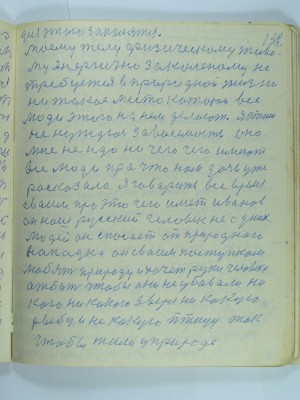 для этого занятия.
132
моему телу физическому живо
му энергично закаленому не
требуется в природной жизни
ни такое место которое все
люди этого на нем делают. я этим
не нуждаюсь зависемость оно
мне не надо ни чего чего имеют
все люди про что нам дочь уже
росказала я говорить все время
своим про это чего имеет иванов
он наш русский человек не одних
людей он спосает от природного
нападка он своим поступком
любить природу и хочет руки человека
отнять чтобы они не убавали ни
кого никакого зверя ни какую
рыбу и не какую птицу так
чтобы жила у природе